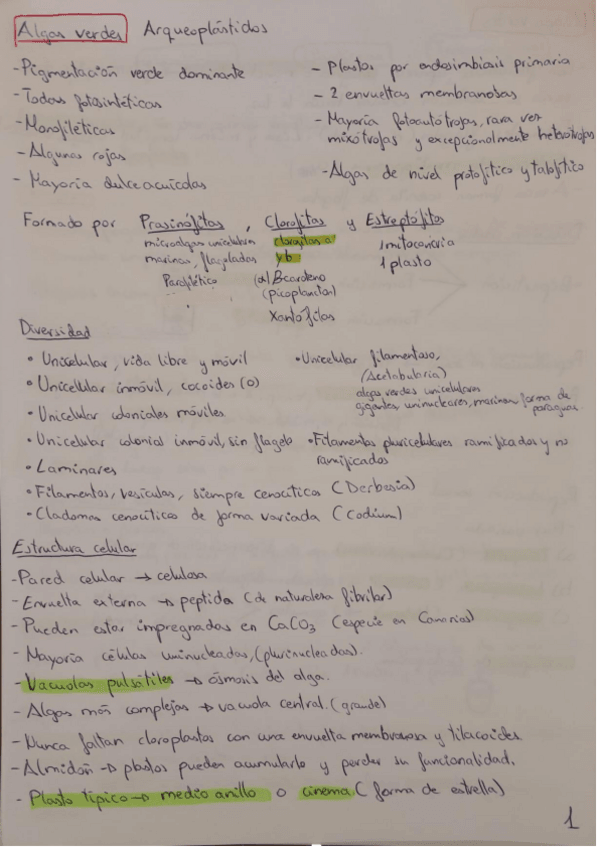 Algas verdes Arqueoplástidos
- Pigmentación verde dominante
- Todas fotosintéticas
- Monofiléticas
- Algunas rojas
- Mayoría dulceacuícolas
- Plastos por endosimbiosis primaria
- 2 envueltas membranosas
- Mayoría fotoautótrofas, rara vez
mixótrofas y excepcionalmente heterótrofas
- Algas de nivel protofítico y talofítico
Formado por Prasinófitas, Clorofitas y Estreptófitos
microalgas unicelulares
marinas, flageladas
Parafilético
clorofilas a
y b
(α) Bcaroteno
(picoplancton)
Xantófilas
1 mitocondria
1 plasto
Diversidad
• Unicelular, vida libre y móvil
• Unicelular inmóvil, cocoides (o)
• Unicelular coloniales móviles
• Unicelular colonial inmóvil, sin flagelo
• Laminares
• Filamentos, vesículas, siempre cenocíticos (Derbesia)
• Cladomas cenocíticos de forma variada (Codium)
• Unicelular filamentoso,
(Acetabularia)
algas verdes unicelulares
gigantes, uninucleares, marinas, forma de
paraguas
• Filamentos pluricelulares ramificados y no
ramificados
Estructura celular
- Pared celular → celulosa
- Envuelta externa → peptida (de naturaleza fibrilar)
- Pueden estar impregnadas en CaCO3 (especie en Canarias)
- Mayoría células uninucleadas, (plurinucleadas).
- Vacuolas pulsátiles → ósmosis del alga.
- Algas más complejas → vacuola central. (grande)
- Nunca faltan cloroplastos con una envuelta membranosa y tilacoides.
- Almidón → plastos pueden acumularlo y perder su funcionalidad.
- Plasto típico → medio anillo o cinema (forma de estrella)
1